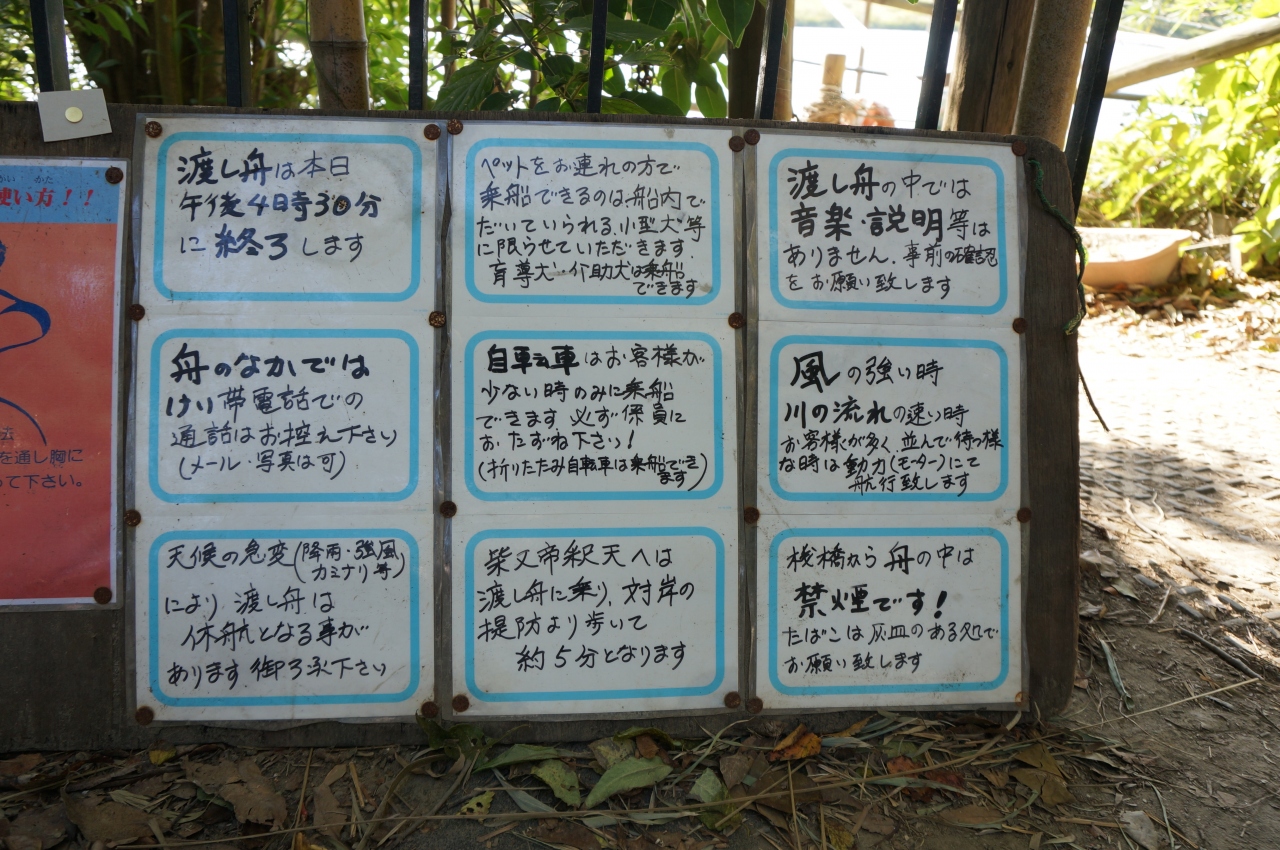 かい かた
使い方！！
法
を通し胸に
って下さい。
渡し舟は本日
午後4時30分
に終了します
舟のなかでは
けい帯電話での
通話はお控え下さい
(メール・写真は可)
天候の急変(降雨・強風
カミナリ等)
により 渡し舟は
休航となる事が
あります 御了承下さい
ペットをお連れの方で
乗船できるのは船内で
だいていられる小型犬等
に限らせていただきます
盲導犬・介助犬は乗船
できます
自転車はお客様が
少ない時のみに乗船
できます 必ず係員に
おたずね下さい!
(折りたたみ自転車は乗船でき
ます)
柴又帝釈天へは
渡し舟に乗り、対岸の
堤防より歩いて
約5分となります
渡し舟の中では
音楽・説明等は
ありません、事前の確認
をお願い致します
風の強い時
川の流れの速い時
お客様が多く、並んで待つ様
な時は動力(モーター)にて
航行致します
桟橋から舟の中は
禁煙です!
たばこは灰皿のある処で
お願い致します